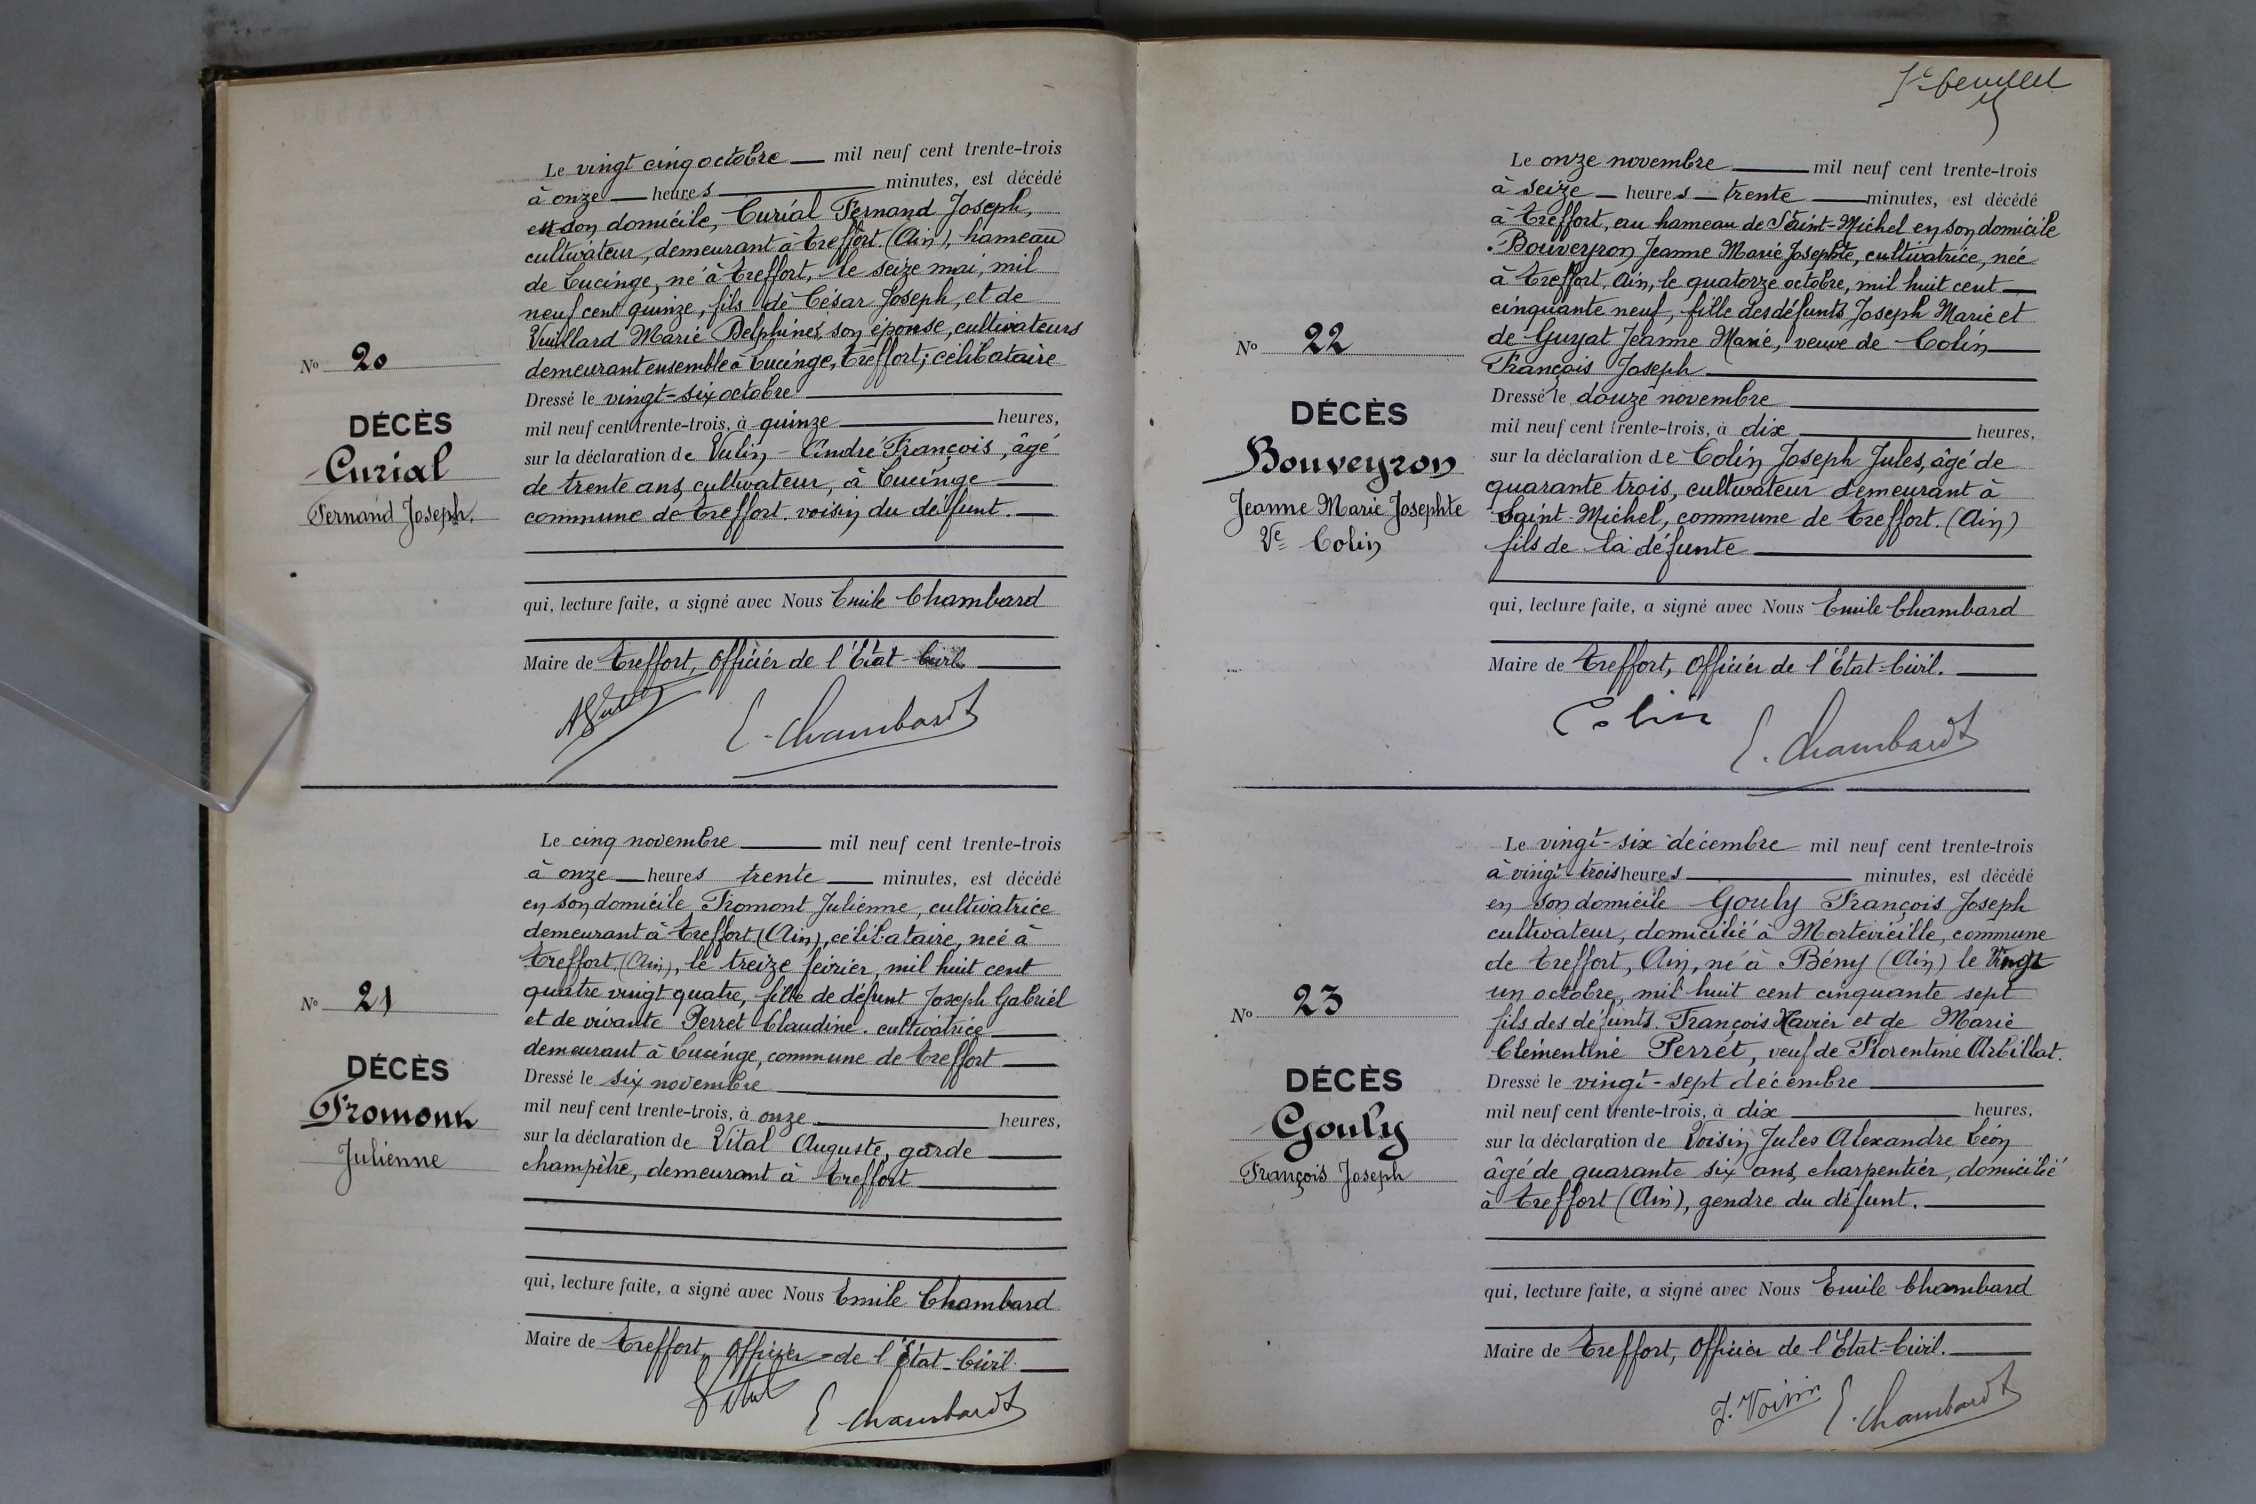 Le vingt cinq octobre mil neuf cent trente-trois
à onze heures minutes, est décédé
en son domicile, Curial Fernand Joseph,
cultivateur, demeurant à Treffort (Ain), hameau
de Lucinge, né à Treffort, le seize mai, mil
neuf cent quinze, fils de César Joseph, et de
Vuillard Marie Delphine, son épouse, cultivateurs
No 20
demeurant ensemble à Lucinge, Treffort; célibataire
Dressé le vingt-six octobre
DÉCÈS
mil neuf cent trente-trois, à quinze heures,
Curial
sur la déclaration de Vulin André François, âgé
de trente ans, cultivateur, à Lucinge
Fernand Joseph.
commune de Treffort. voisin du défunt.
qui, lecture faite, a signé avec Nous Emile Chambard
Maire de Treffort, Officier de l'Etat-Civil
E. Chambard
Le cinq novembre mil neuf cent trente-trois
à onze heures trente minutes, est décédé
en son domicile Fromont Julienne, cultivatrice
demeurant à Treffort (Ain), célibataire, née à
Treffort, (Ain), le treize février, mil huit cent
quatre vingt quatre, fille de défunt Joseph Gabriel
No 21
et de vivante Perret Claudine. cultivatrice
demeurant à Lucinge, commune de Treffort
DÉCÈS
Dressé le six novembre
Fromont
mil neuf cent trente-trois, à onze heures,
sur la déclaration de Vital Auguste, garde
Julienne
champêtre, demeurant à Treffort
qui, lecture faite, a signé avec Nous Emile Chambard
Maire de Treffort, Officier de l'Etat-Civil.
Vital
E. Chambard
Le onze novembre mil neuf cent trente-trois
à seize heures trente minutes, est décédé
à Treffort, au hameau de Saint-Michel en son domicile
Bouveyron Jeanne Marie Josephte, cultivatrice, née
à Treffort, Ain, le quatorze octobre, mil huit cent
cinquante neuf, fille des défunts Joseph Marie et
No 22
de Guyat Jeanne Marie, veuve de Colin
François Joseph
Dressé le douze novembre
DÉCÈS
mil neuf cent trente-trois, à dix heures,
Bouveyron
sur la déclaration de Colin Joseph Jules, âgé de
quarante trois, cultivateur demeurant à
Jeanne Marie Josephte
Saint-Michel, commune de Treffort. (Ain)
Ve Colin
fils de la défunte
qui, lecture faite, a signé avec Nous Emile Chambard
Maire de Treffort, Officier de l'Etat-Civil.
Colin
E. Chambard
Le vingt-six décembre mil neuf cent trente-trois
à vingt trois heures minutes, est décédé
en son domicile Gouly François Joseph
cultivateur, domicilié à Mortevieille, commune
de Treffort, Ain, né à Bény (Ain) le vingt
un octobre, mil huit cent cinquante sept
No 23
fils des défunts. François Xavier et de Marie
Clémentine Perret, veuf de Florentine Arbillat.
DÉCÈS
Dressé le vingt-sept décembre
mil neuf cent trente-trois, à dix heures,
Gouly
sur la déclaration de Voisin Jules Alexandre Léon
François Joseph
âgé de quarante six ans, charpentier, domicilié
à Treffort (Ain), gendre du défunt.
qui, lecture faite, a signé avec Nous Emile Chambard
Maire de Treffort, Officier de l'Etat-Civil.
J. Voisin
E. Chambard